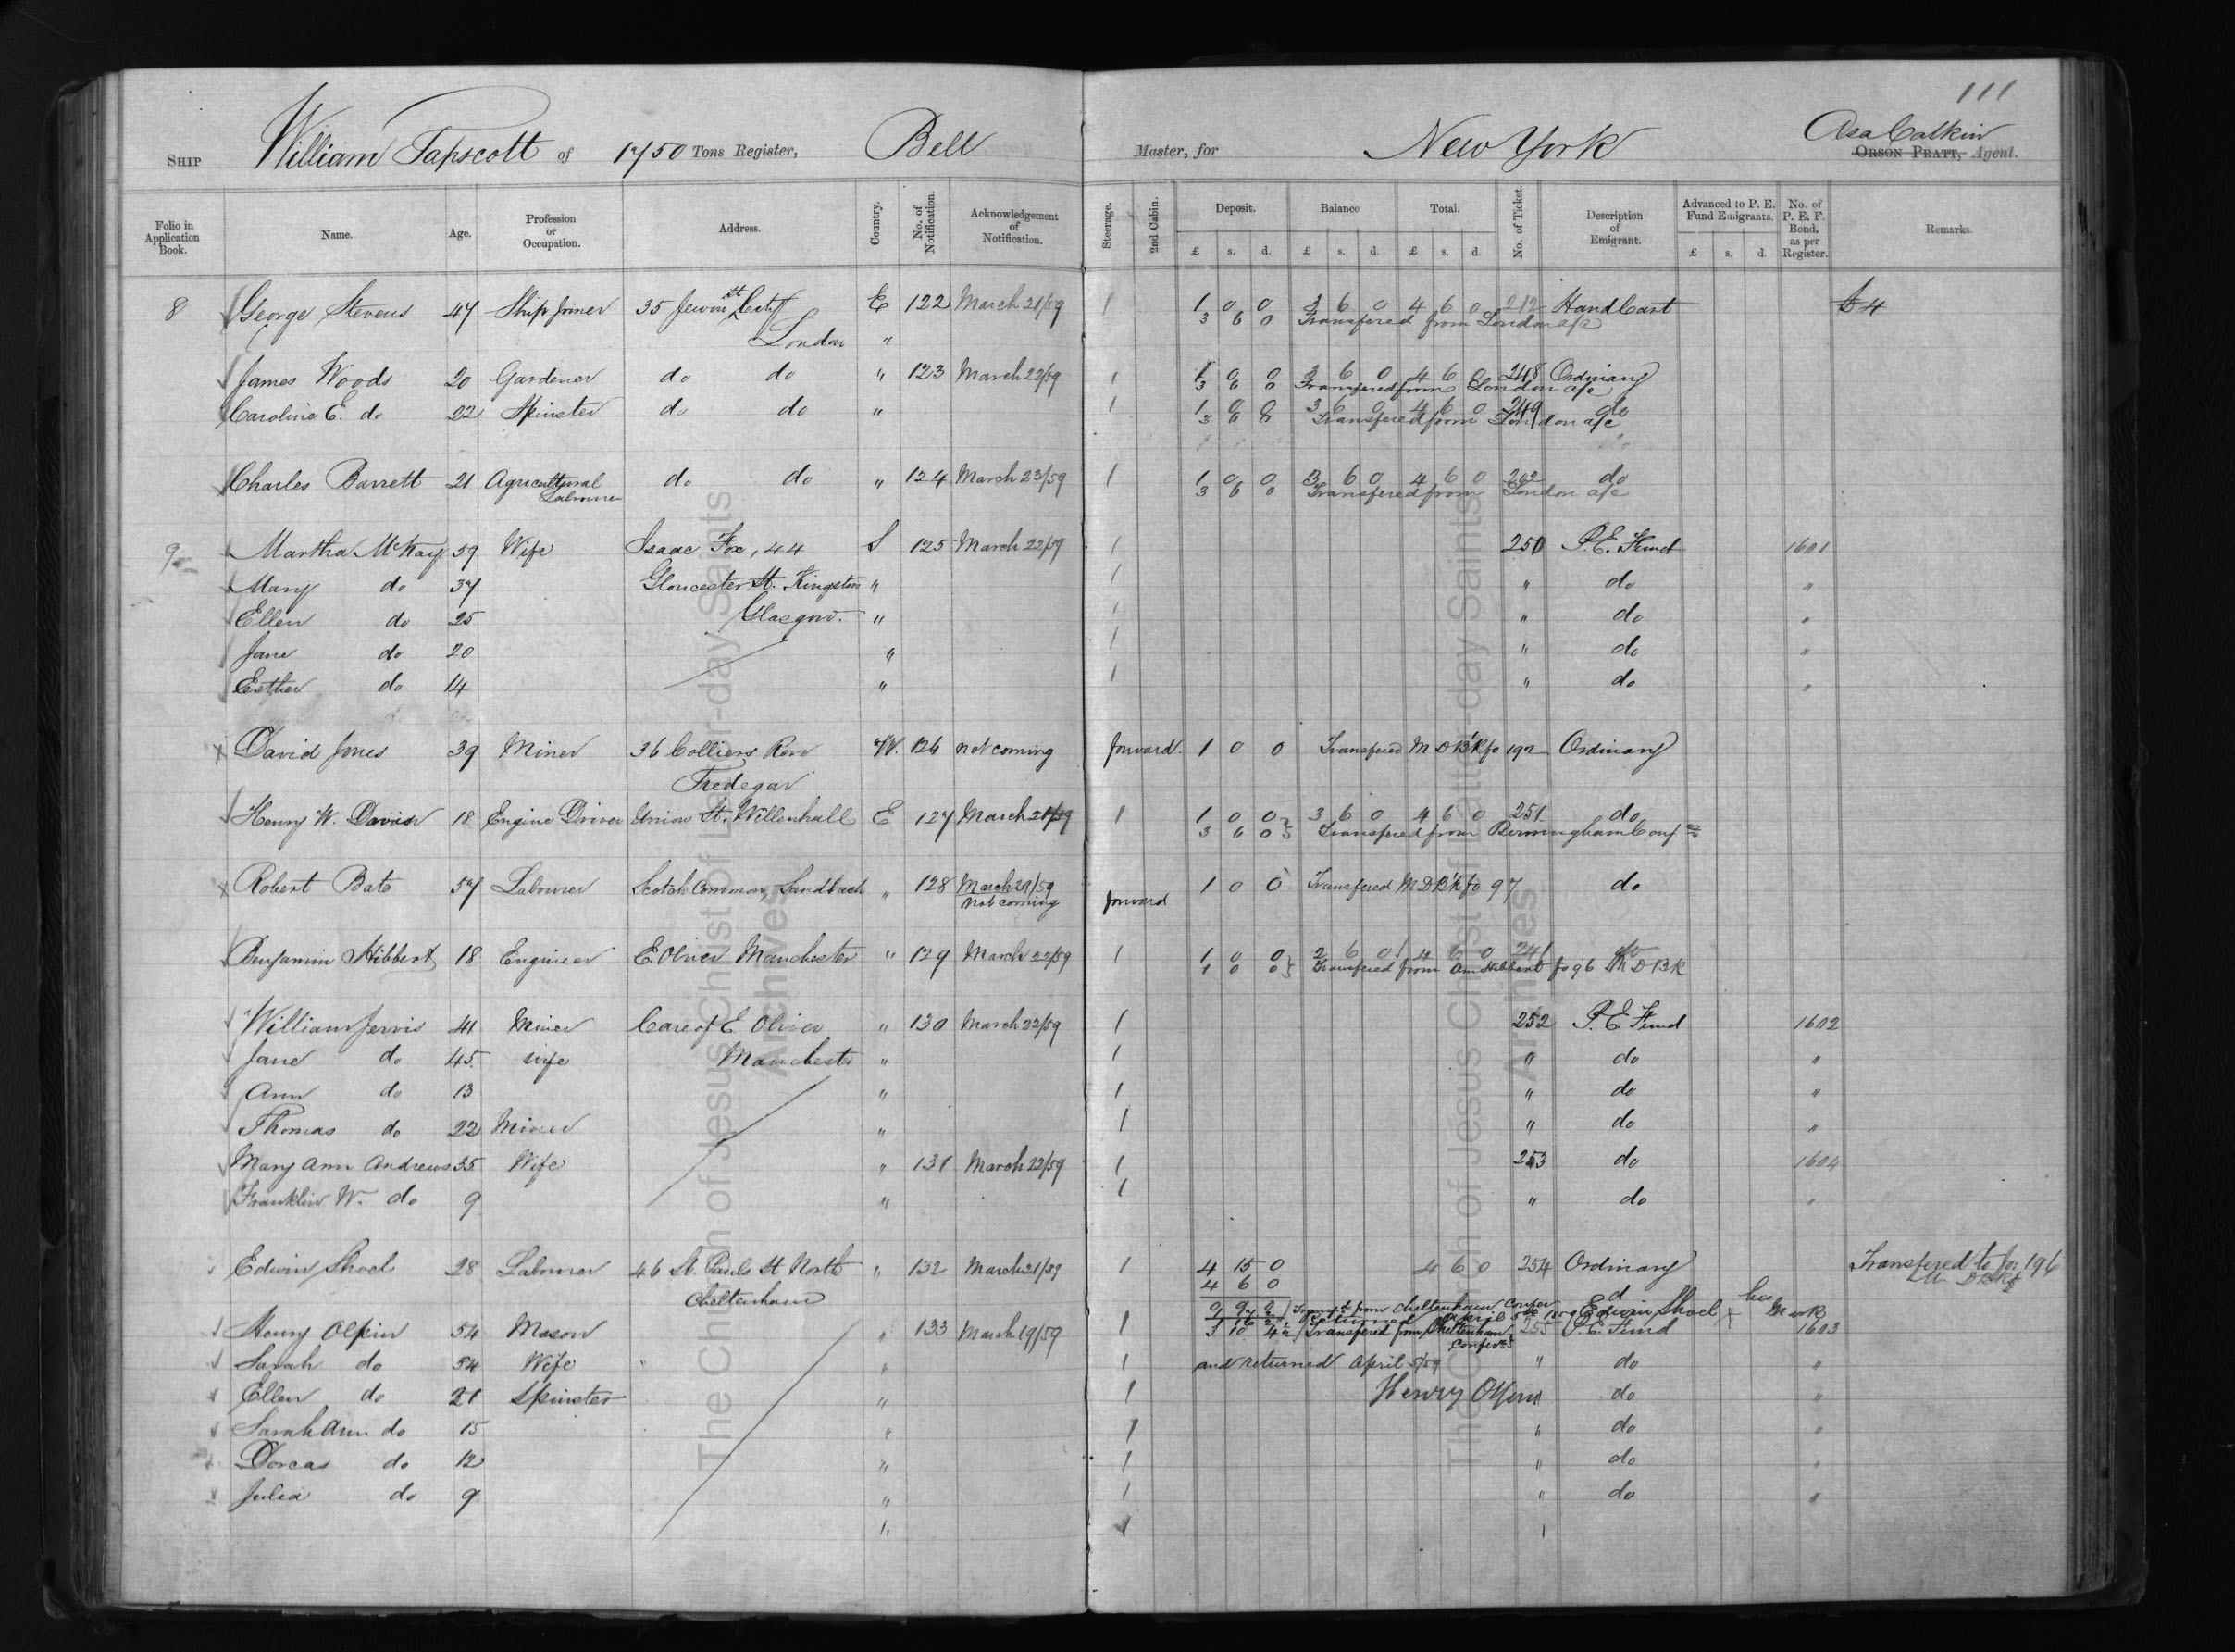 111
SHIP William Tapscott of 1750 Tons Register, Bell Master, for New York Asa Calkin ORSON PRATT, Agent.
Folio in Application Book. Name. Age. Profession or Occupation. Address. Country. No. of Notification. Acknowledgement of Notification. Steerage. 2nd Cabin. Deposit. Balance Total. No. of Ticket. Description of Emigrant. Advanced to P. E. Fund Emigrants. No. of P. E. F. Bond, as per Register. Remarks.
£ s. d. £ s. d. £ s. d. £ s. d.
8 George Stevens 47 Ship Joiner 35 Jewin St City E 122 March 21/59 1 1 0 0 3 6 0 4 6 0 212 Hand Cart
London " 3 6 0 Transfered from London a/c
James Woods 20 Gardener do do " 123 March 22/59 1 1 0 0 3 6 0 4 6 0 248 Ordinary
3 6 0 Transfered from London a/c
Caroline E. do 22 Spinster do do " 1 1 0 0 3 6 0 4 6 0 249 do
3 6 0 Transfered from London a/c
Charles Barrett 21 Agricultural Labourer do do " 124 March 23/59 1 1 0 0 3 6 0 4 6 0 262 do
3 6 0 Transfered from London a/c
9 Martha McKay 59 Wife Isaac Fox, 44 S 125 March 22/59 1 250 P. E. Fund 1601
Mary do 37 Gloucester St. Kingston " 1 " do "
Ellen do 25 Glasgow. " 1 " do "
Jane do 20 " 1 " do "
Esther do 14 " 1 " do "
David Jones 39 Miner 36 Colliers Row W. 126 not coming forward. 1 0 0 Transfered M D B'K fo 192 Ordinary
Tredegar
Henry W. Davis 18 Engine Driver Union St. Willenhall E 127 March 21/59 1 1 0 0 3 6 0 4 6 0 251 do
3 6 0 Transfered from Birmingham Conf
Robert Bate 57 Labourer Scotch Common, Sandbach " 128 March 29/59 1 0 0 Transfered M D B'K fo 97 do
not coming forward
Benjamin Hibbert 18 Engineer E Oliver Manchester " 129 March 22/59 1 1 0 0 2 6 0 4 6 0 241 do
1 0 0 Transfered from Ann Hibbert fo 96 M D B K
William Jervis 41 Miner Care of E. Oliver " 130 March 22/59 1 252 P. E. Fund 1602
Jane do 45 wife Manchester " 1 " do "
Ann do 13 " 1 " do "
Thomas do 22 Miner " 1 " do "
Mary Ann Andrews 35 Wife " 131 March 22/59 1 253 do 1604
Franklin W. do 9 " 1 " do "
Edwin Shoel 28 Labourer 46 St. Pauls St North " 132 March 21/59 1 4 15 0 4 6 0 254 Ordinary Transfered to fo: 196
Cheltenham 4 6 0
Edwin Shoel his Mark
Henry Olpin 54 Mason " 133 March 19/59 1 3 10 4 Transfered from Cheltenham 255 P. E. Fund 1603
Sarah do 54 Wife " 1 and returned April 5/59 " do "
Ellen do 21 Spinster " 1 Henry Olpin do "
Sarah Ann do 15 " 1 " do "
Dorcas do 12 " 1 " do "
Julia do 9 " 1 " do "
The Church of Jesus Christ of Latter-day Saints
Archives
The Church of Jesus Christ of Latter-day Saints
Archives